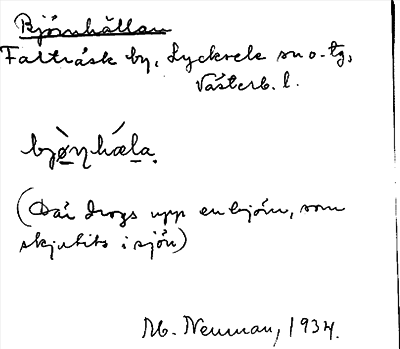 Björnhällan
Fatträsk by, Lycksele sn o. tg,
Västerb. l.
bjö̀ṇhæla.
(Där drogs upp en björn, som
skjutits i sjön)
M. Neuman, 1934.